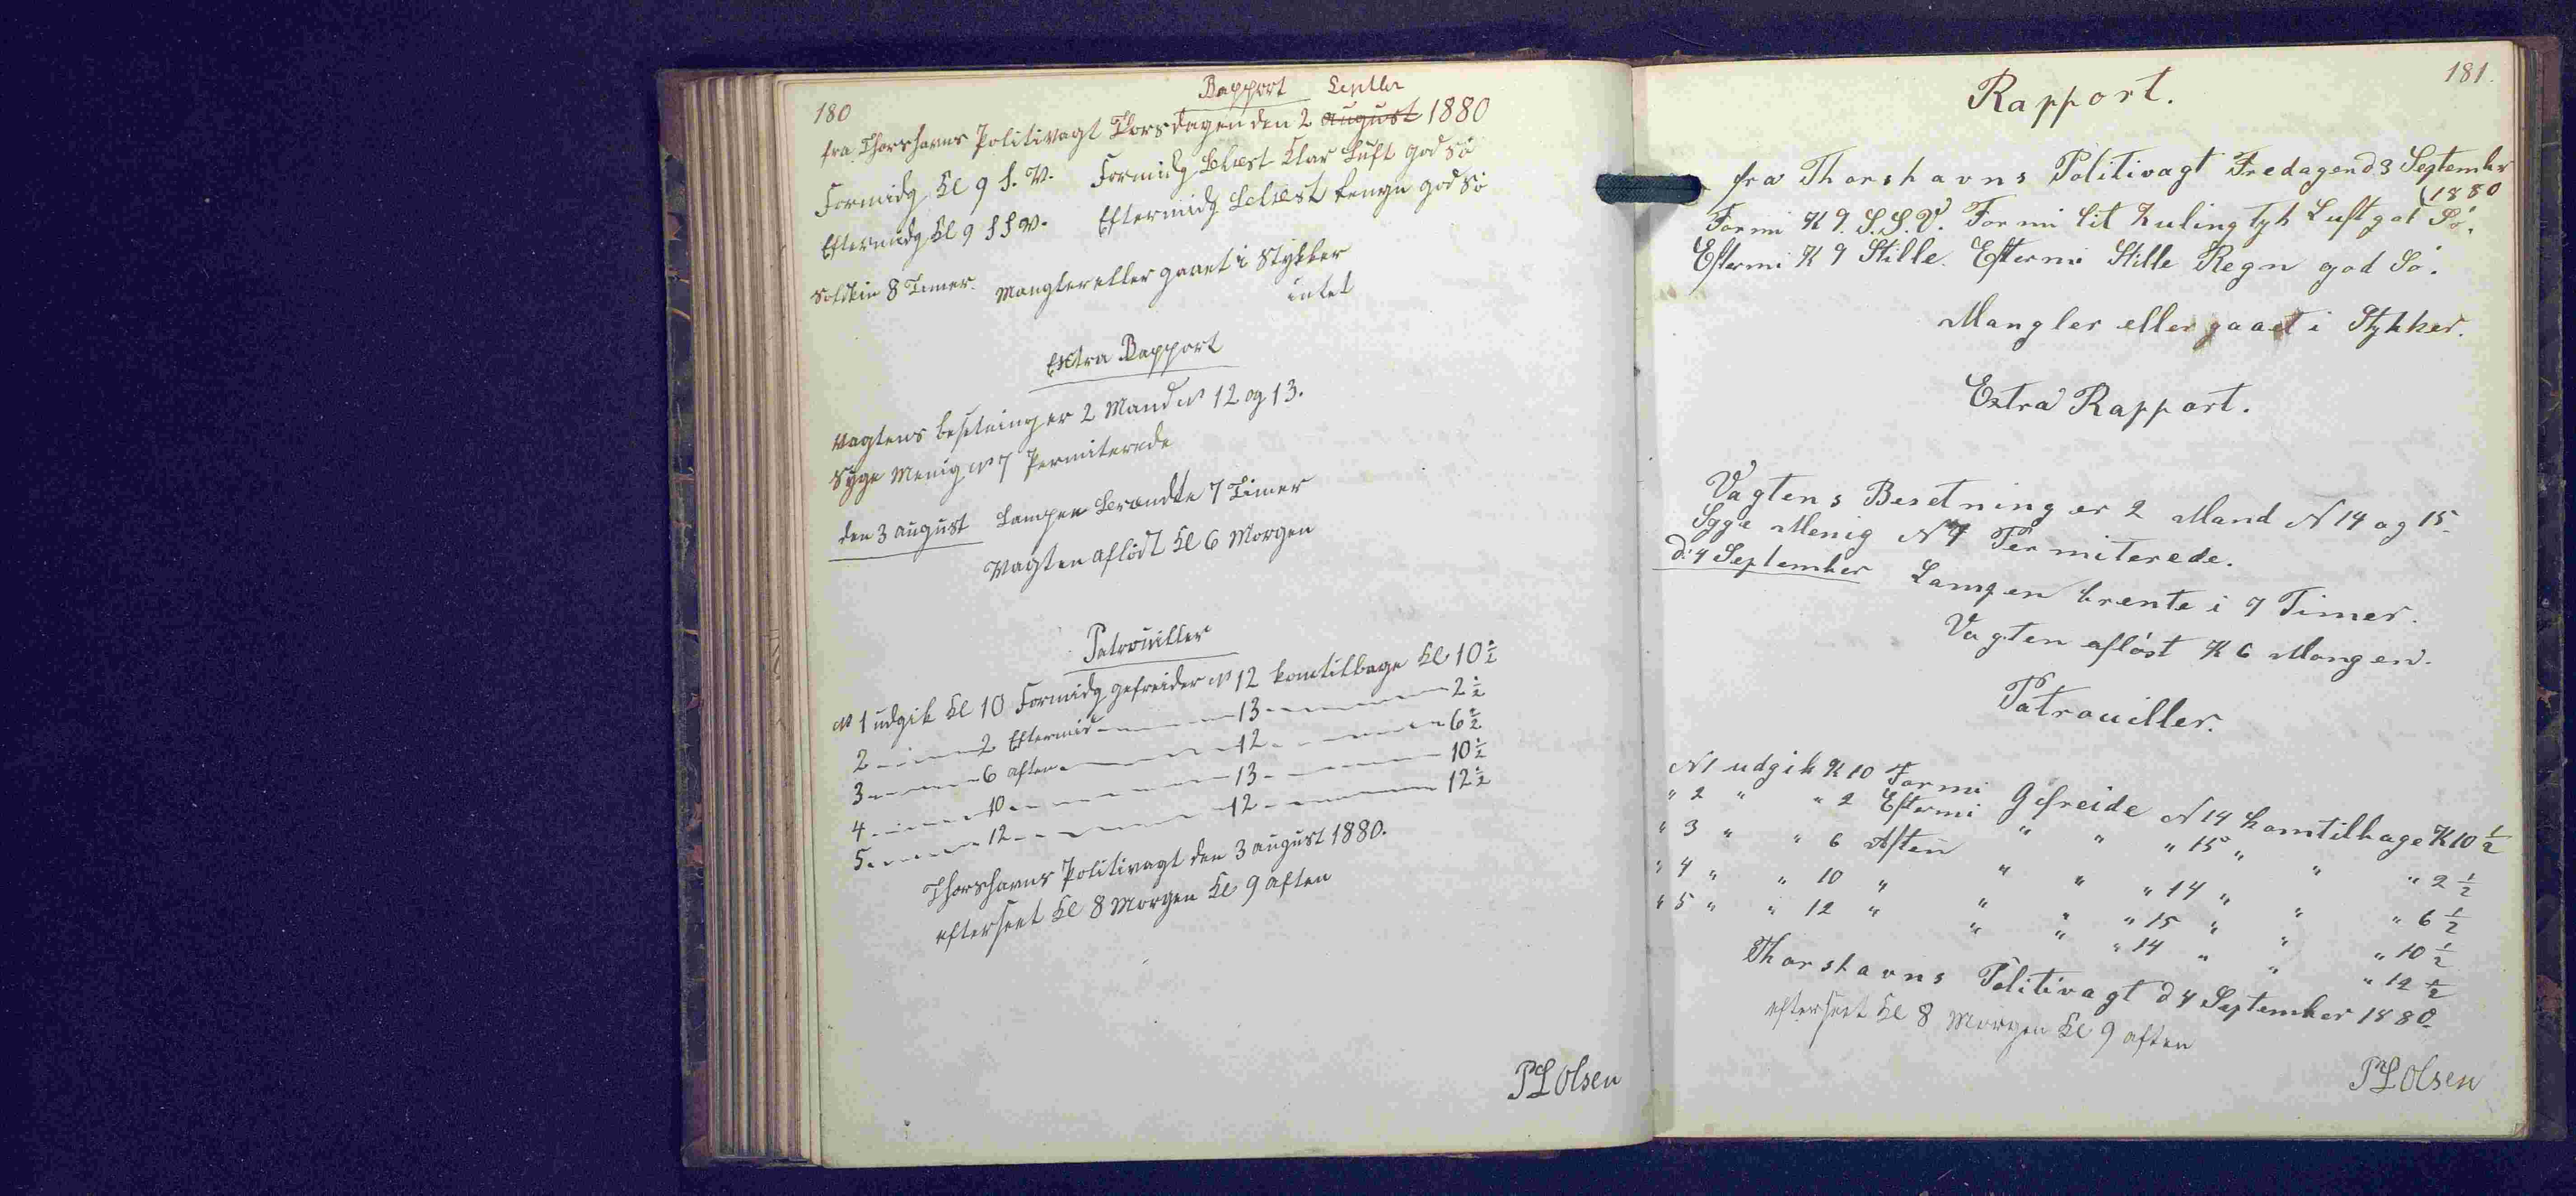 180
Rapport Septbr
fra Thorshavns Politivagt Thorsdagen den 2 august 1880
Formidg Kl 9 S. V. Formidg Blæst Klar Luft god Sö
Eftermidg Kl 9 S S V. Eftermidg Blæst Regn god Sö
Solskin 8 Timer. Mangler eller gaaet i Stykker
intet
Extra Rapport
Vagtens besetning er 2 Mand No 12 og 13.
Syge Menig No 7 Permiterede
den 3 august Lampen Brændte 7 Timer
Vagten aflödt Kl 6 Morgen
Patrouiller
No 1 udgik Kl 10 Formidg gefreider No 12 komtilbage Kl 10 1/2
2 — — 2 Eftermid — — 13 — — 2 1/2
3 — — 6 aften — — 12 — — 6 1/2
4 — — 10 — — 13 — — 10 1/2
5 — — 12 — — 12 — — 12 1/2
Thorshavns Politivagt den 3 august 1880.
efterseet Kl 8 Morgen Kl 9 aften
PL Olsen
181.
Rapport.
fra Thorshavns Politivagt Fredagen d 3 September
(1880
Formi K 9. S.S.V. Formi lit Kuling tyk Luft got Sö.
Eftermi K 9 Stille. Eftermi Stille Regn god Sö.
Mangler eller gaaet i Stykker.
Extra Rapport.
Vagtens Besetning er 2 Mand N 14 og 15
Syge Menig N 7 Permiterede.
d: 4 September Lampen brente i 7 Timer.
Vagten aflöst K 6 Morgen.
Patrouiller.
N 1 udgik K 10 Formi Gefreide N 14 komtilbage K 10 1/2
" 2 " " 2 Eftermi " " " 15 " " " 2 1/2
" 3 " " 6 Aften " " " 14 " " " 6 1/2
" 4 " " 10 " " " " 15 " " " 10 1/2
" 5 " " 12 " " " " 14 " " " 12 1/2
Thorshavns Politivagt d 4 September 1880.
efterseet Kl 8 Morgen Kl 9 aften
PL Olsen